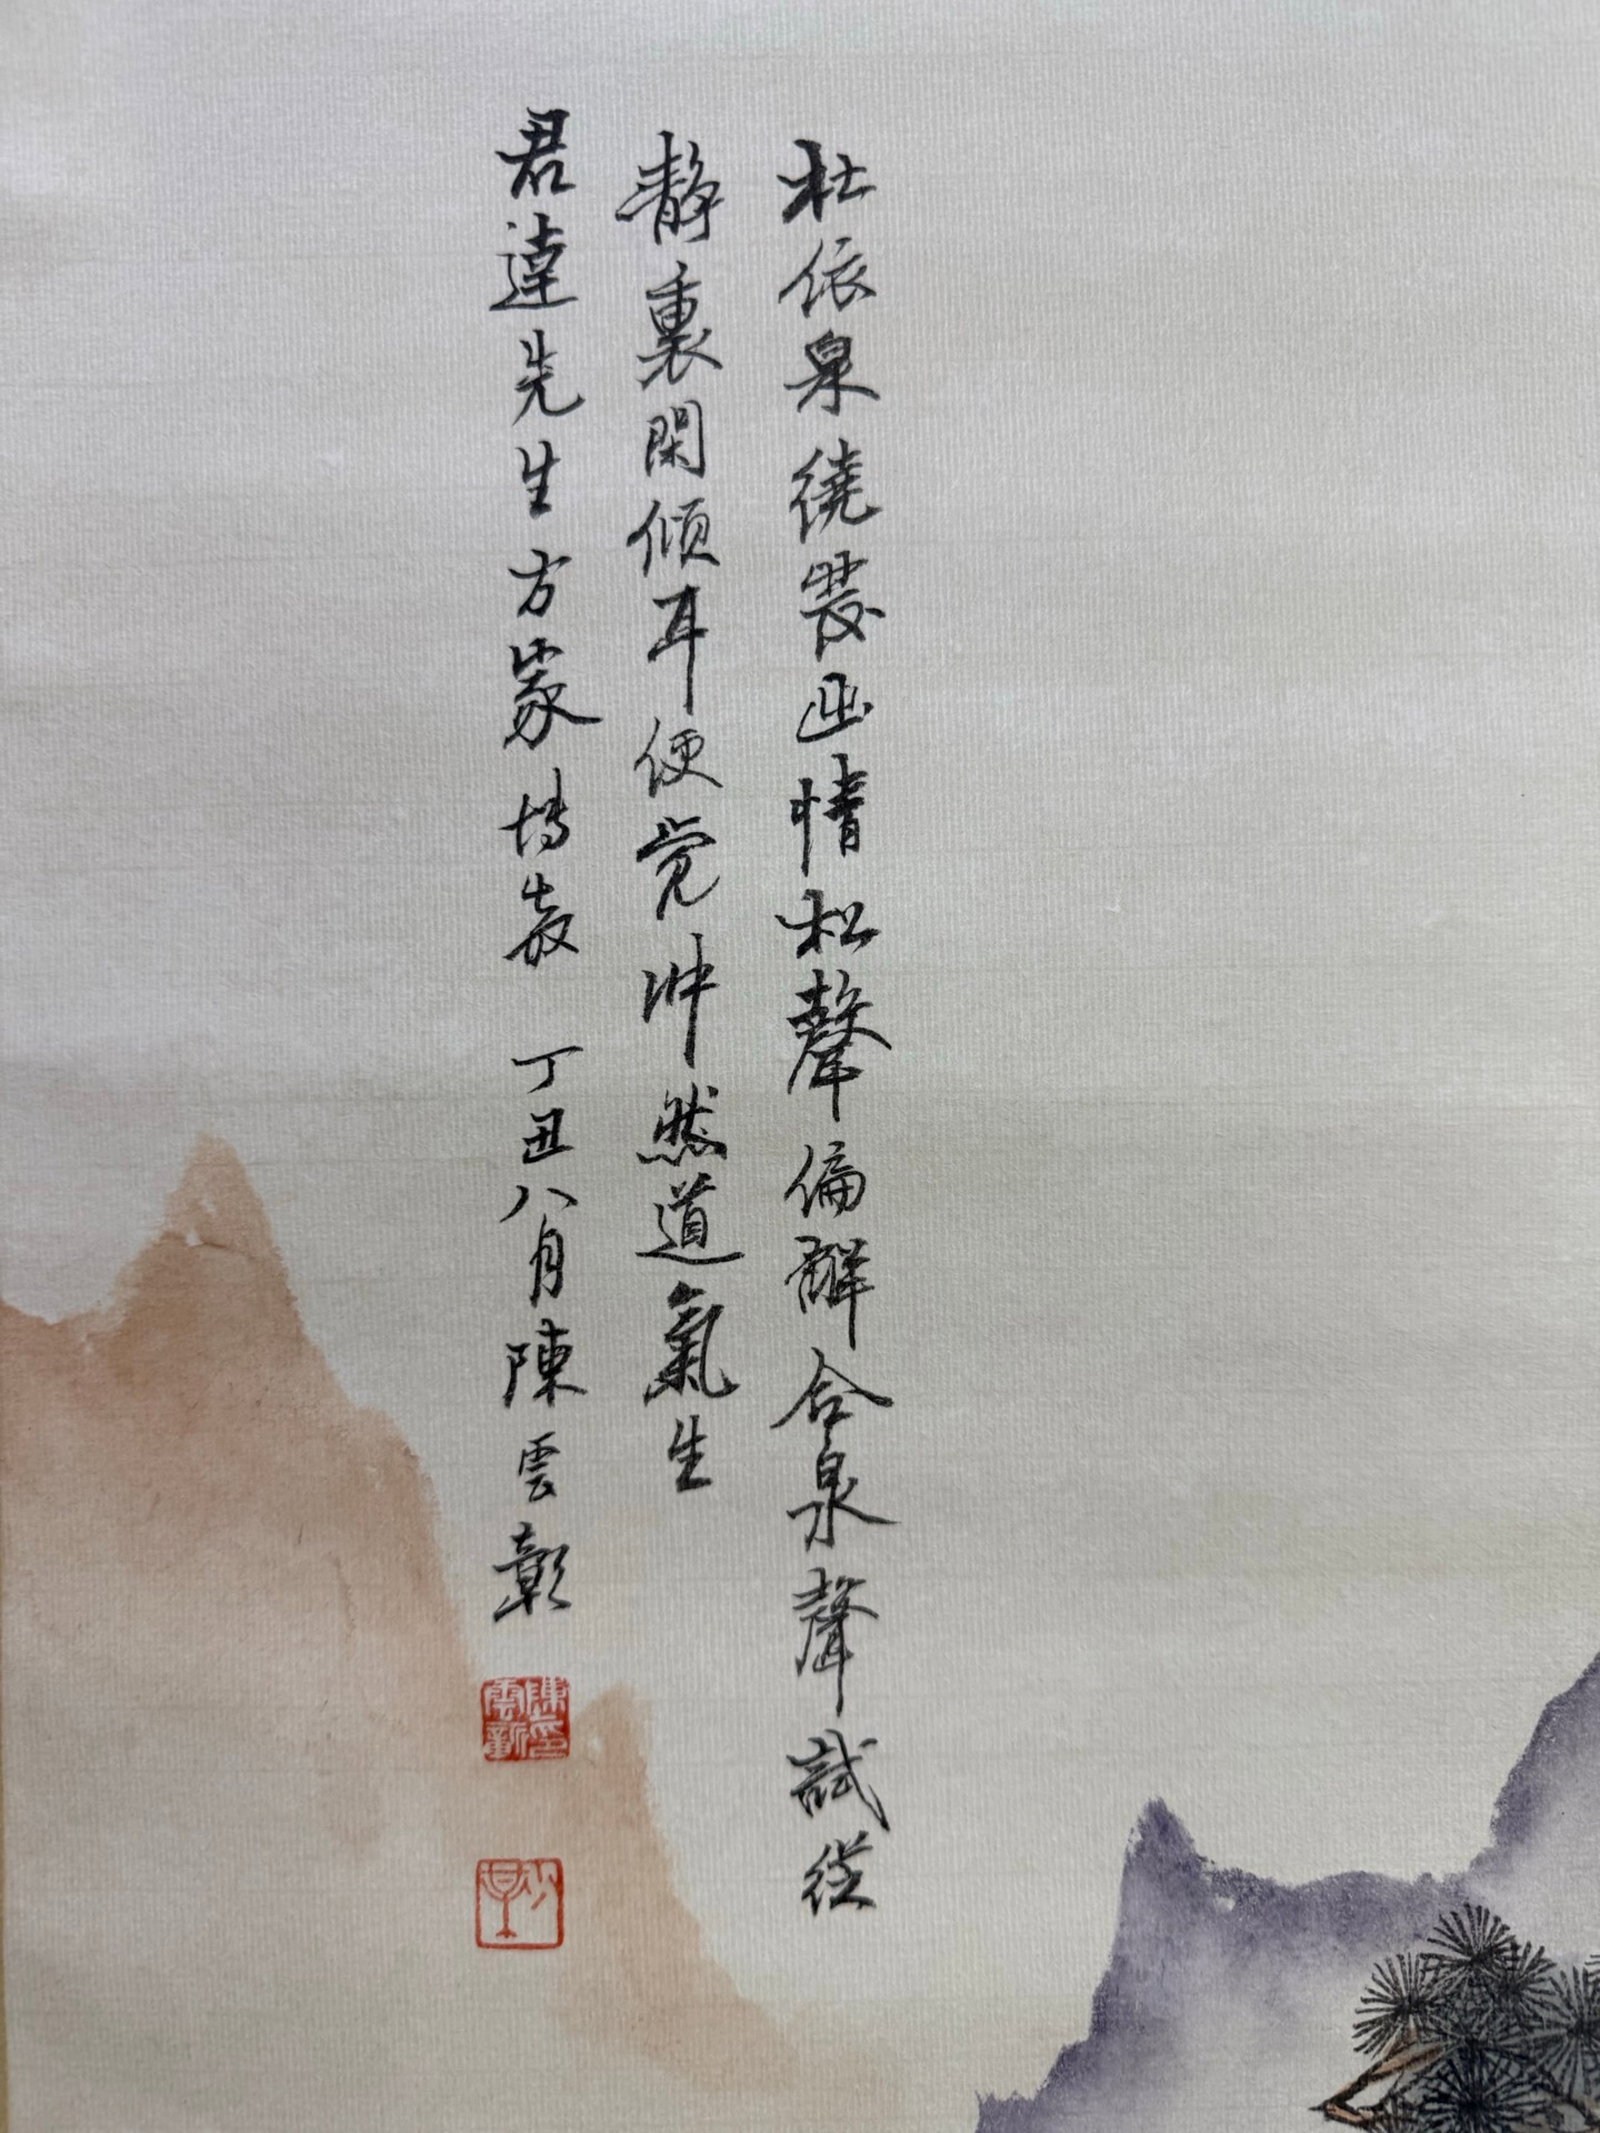 杜依泉繞發幽情松聲偏解合泉聲試從
静裏閑傾耳便觉冲然道氣生
君達先生方家博教 丁丑八月陳雲彰
陳印雲彰